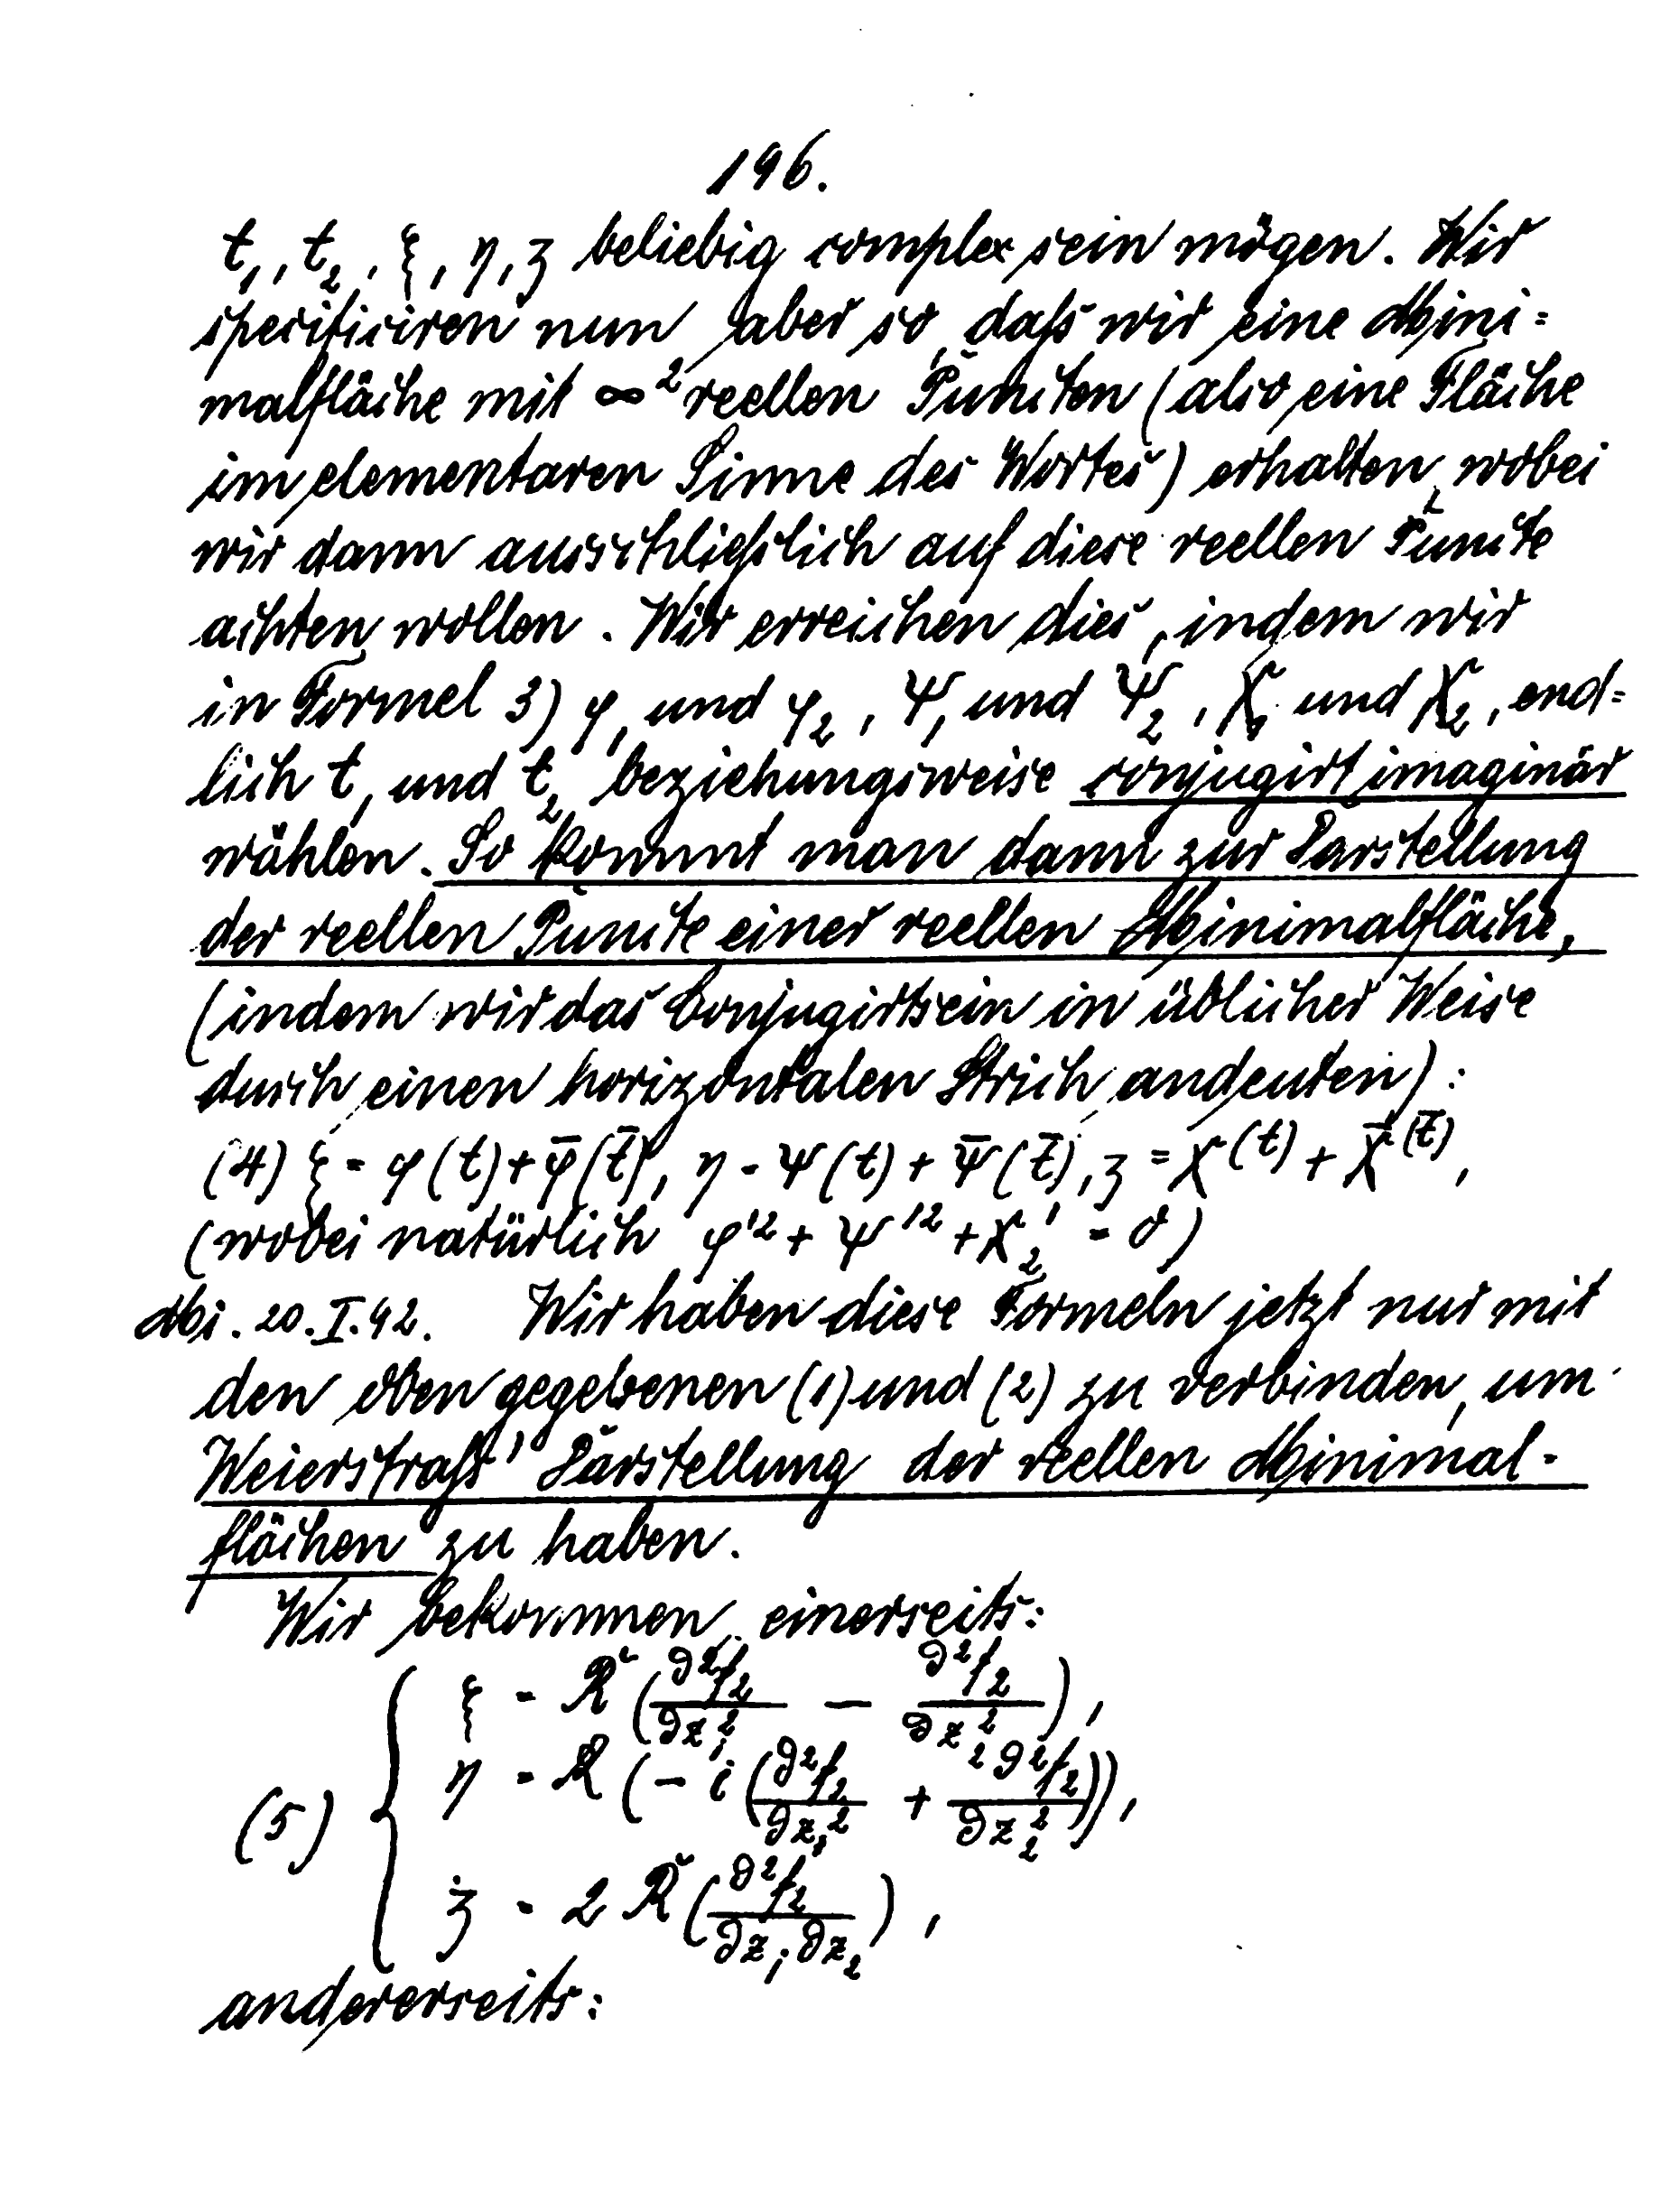 196.
t₁, t₂, ξ, η, ʒ beliebig complex sein mögen. Wir
specificiren nun aber so, daß wir eine Mini=
malfläche mit ∞² reellen Puncten (also eine Fläche
im elementaren Sinne des Wortes) erhalten, wobei
wir dann ausschließlich auf diese reellen Puncte
achten wollen. Wir erreichen dies, indem wir
in Formel 3) φ₁ und φ₂, Ψ₁ und Ψ₂, χ₁ und χ₂, end=
lich t₁ und t₂ beziehungsweise conjugirt imaginär
wählen. So kommt man dann zur Darstellung
der reellen Puncte einer reellen Minimalfläche,
(indem wir das Conjugirtsein in üblicher Weise
durch einen horizontalen Strich andeuten):
(4) ξ = φ(t) + φ̄(t̄), η = Ψ(t) + Ψ̄(t̄), ʒ = χ(t) + χ̄(t̄),
(wobei natürlich φ'² + Ψ'² + χ₂' = 0)
Mi. 20.I.92. Wir haben diese Formeln jetzt nur mit
den oben gegebenen (1) und (2) zu verbinden, um
Weierstraß' Darstellung der reellen Minimal-
flächen zu haben.
Wir bekommen einerseits:
(5) { ξ = R (∂²f₂/∂z₁² − ∂²f₂/∂z₂²),
η = R (− i (∂²f₂/∂z₁² + ²∂²f₂/∂z₂²)),
ʒ = 2 R (∂²f₂/∂z₁∂z₂),
andererseits: